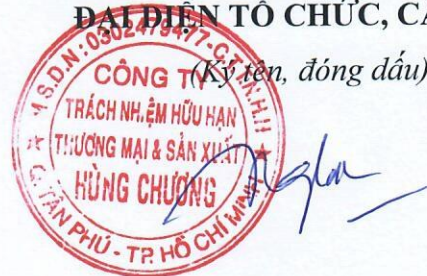 ĐẠI DIỆN TỔ CHỨC, CÁ
(Ký tên, đóng dấu)
M.S.D.N: 0302479477-C.T.T.N.H.H
CÔNG TY
TRÁCH NHIỆM HỮU HẠN
THƯƠNG MẠI & SẢN XUẤT
HÙNG CHƯƠNG
Q. TÂN PHÚ - TP. HỒ CHÍ MINH